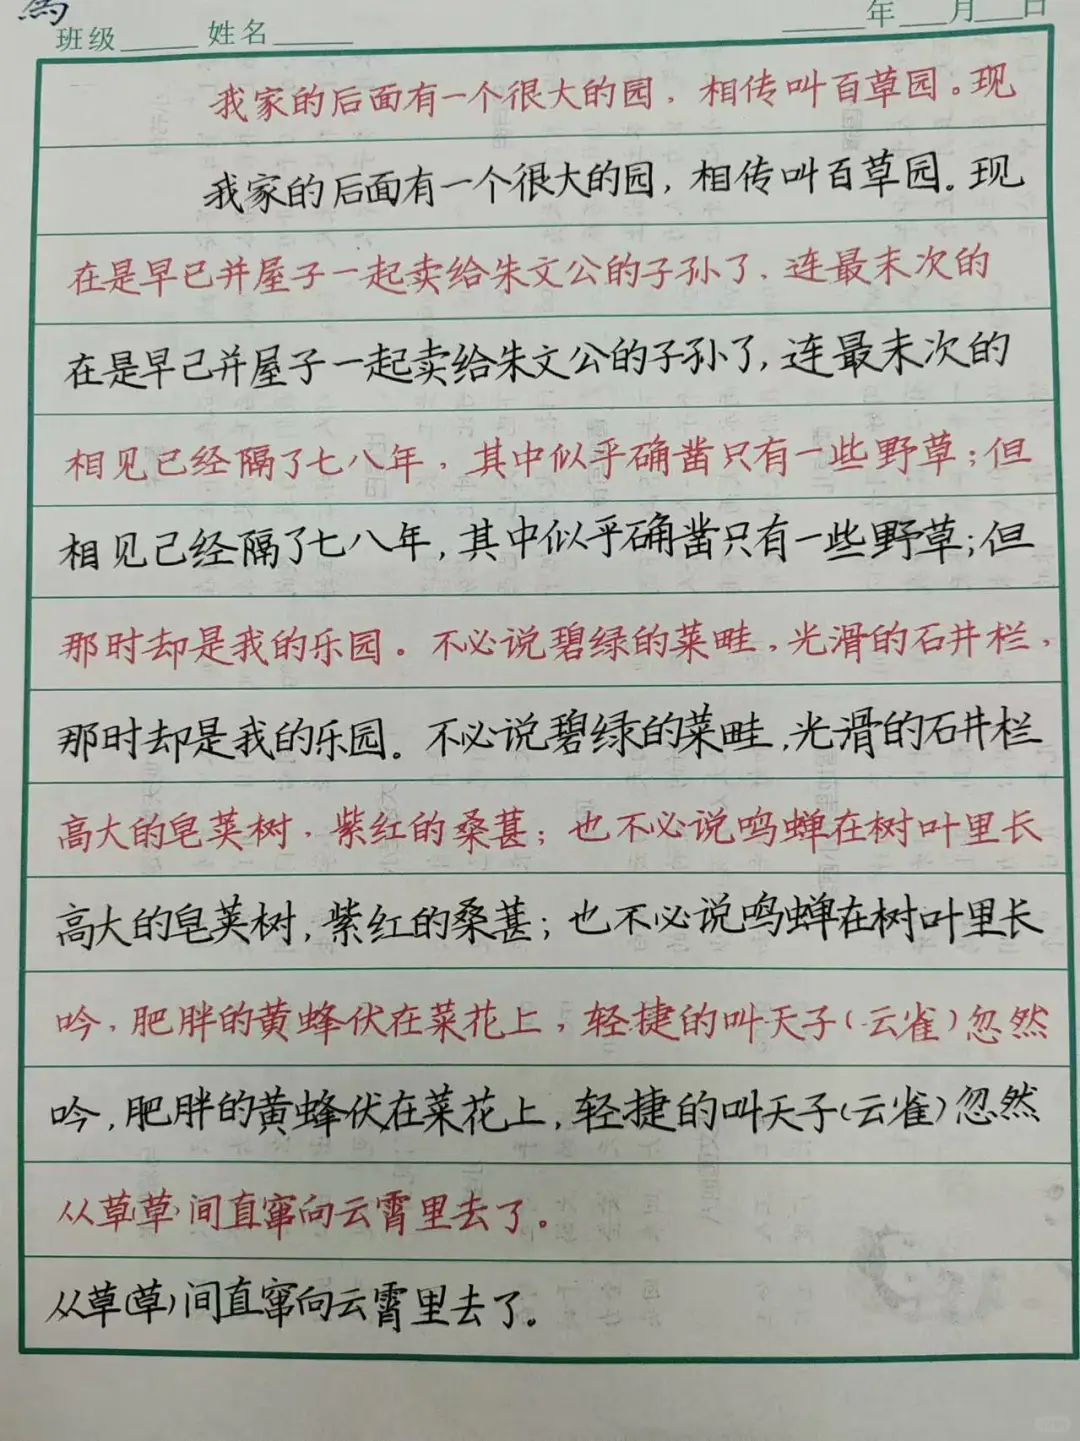 班级 姓名 年 月 日
我家的后面有一个很大的园，相传叫百草园。现
我家的后面有一个很大的园，相传叫百草园。现
在是早已并屋子一起卖给朱文公的子孙了，连最末次的
在是早已并屋子一起卖给朱文公的子孙了，连最末次的
相见已经隔了七八年，其中似乎确凿只有一些野草；但
相见已经隔了七八年，其中似乎确凿只有一些野草；但
那时却是我的乐园。不必说碧绿的菜畦，光滑的石井栏，
那时却是我的乐园。不必说碧绿的菜畦，光滑的石井栏
高大的皂荚树，紫红的桑葚；也不必说鸣蝉在树叶里长
高大的皂荚树，紫红的桑葚；也不必说鸣蝉在树叶里长
吟，肥胖的黄蜂伏在菜花上，轻捷的叫天子(云雀)忽然
吟，肥胖的黄蜂伏在菜花上，轻捷的叫天子(云雀)忽然
从草(草)间直窜向云霄里去了。
从草(草)间直窜向云霄里去了。